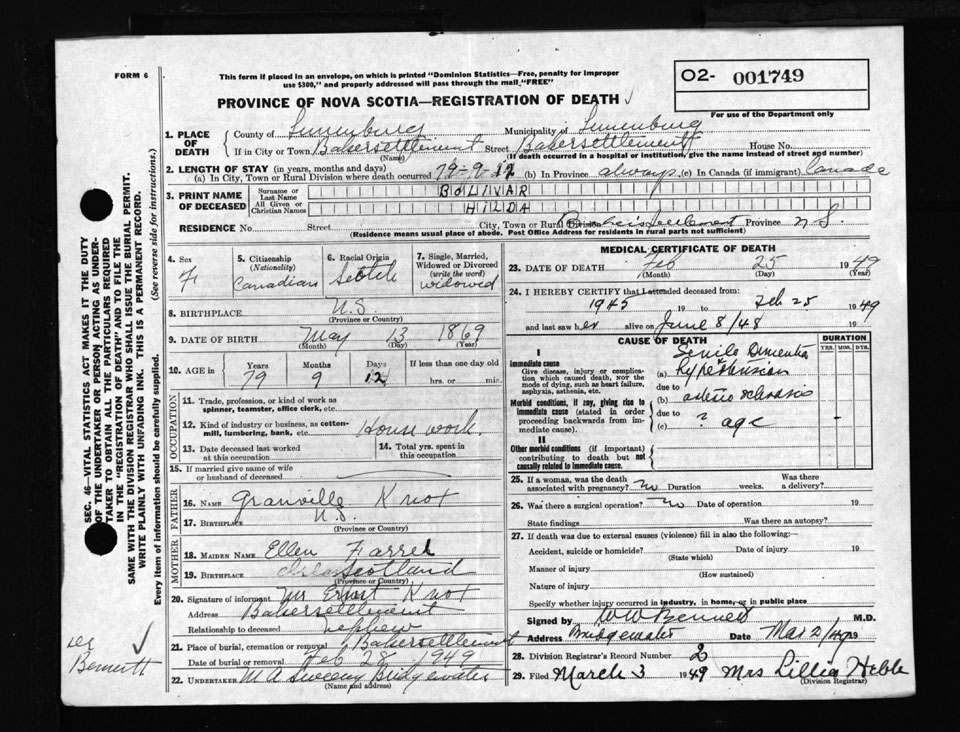 FORM 6
This form if placed in an envelope, on which is printed "Dominion Statistics—Free, penalty for improper
use $300," and properly addressed will pass through the mail "FREE"
O2- 001749
PROVINCE OF NOVA SCOTIA—REGISTRATION OF DEATH
For use of the Department only
1. PLACE OF DEATH
County of Lunenburg Municipality of Lunenburg
If in City or Town Bakersettlement Street Bakersettlement House No.
(Name) (If death occurred in a hospital or institution, give the name instead of street and number)
2. LENGTH OF STAY (in years, months and days)
(a) In City, Town or Rural Division where death occurred 79-9-12 (b) In Province always (c) In Canada (if immigrant) Canada
3. PRINT NAME OF DECEASED
Surname or Last Name BOLIVAR
All Given or Christian Names HILDA
RESIDENCE No. Street City, Town or Rural Division Province N.S.
(Residence means usual place of abode. Post Office Address for residents in rural parts not sufficient)
4. Sex F
5. Citizenship (Nationality) Canadian
6. Racial Origin Scotch
7. Single, Married, Widowed or Divorced (write the word) widowed
8. BIRTHPLACE N.S.
(Province or Country)
9. DATE OF BIRTH May 13 1869
(Month) (Day) (Year)
10. AGE in Years Months Days If less than one day
79 9 12 hrs. or min.
OCCUPATION
11. Trade, profession, or kind of work as
spinner, teamster, office clerk, etc.
12. Kind of industry or business, as cotton-
mill, lumbering, bank, etc. House work.
13. Date deceased last worked
at this occupation
14. Total yrs. spent in
this occupation
15. If married give name of wife
or husband of deceased
FATHER
16. NAME Granville Knox
17. BIRTHPLACE N.S.
(Province or Country)
MOTHER
18. MAIDEN NAME Ellen Farrel
19. BIRTHPLACE Scotland
(Province or Country)
20. Signature of informant Mr Ernest Knox
Address Bakersettlement
Relationship to deceased nephew
21. Place of burial, cremation or removal Bakersettlement
Date of burial or removal Feb 28 1949
22. UNDERTAKER M A Sweeny Bridgewater
(Name and address)
MEDICAL CERTIFICATE OF DEATH
23. DATE OF DEATH Feb 25 1949
(Month) (Day) (Year)
24. I HEREBY CERTIFY that I attended deceased from:
1945 19 to Feb 25 1949
and last saw her alive on June 8/48 19
CAUSE OF DEATH
DURATION
YRS. MOS. DYS.
I
Immediate cause
Give disease, injury or complica-
tion which caused death, not the
mode of dying, such as heart failure,
asphyxia, asthenia, etc.
Senile Dementia
(a) Hypertension
due to
Morbid conditions, if any, giving rise to
immediate cause (stated in order
proceeding backwards from im-
mediate cause).
(b) arterio sclerosis
due to
(c) ? age
II
Other morbid conditions (if important)
contributing to death but not
causally related to immediate cause.
25. If a woman, was the death
associated with pregnancy? no Duration weeks. Was there
a delivery?
26. Was there a surgical operation? no Date of operation 19
State findings Was there an autopsy?
27. If death was due to external causes (violence) fill in also the following:
Accident, suicide or homicide? Date of injury 19
(State which)
Manner of injury
(How sustained)
Nature of injury
Specify whether injury occurred in industry, in home, or in public place
Signed by W W Bennett M.D.
Address Bridgewater Date Mar 2/49 19
28. Division Registrar's Record Number 2
29. Filed March 3 1949 Mrs Lillia Hebb
(Division Registrar)
SEC. 46—VITAL STATISTICS ACT MAKES IT THE DUTY
OF THE UNDERTAKER OR PERSON ACTING AS UNDER-
TAKER TO OBTAIN ALL THE PARTICULARS REQUIRED
IN THE "REGISTRATION OF DEATH" AND TO FILE THE
SAME WITH THE DIVISION REGISTRAR WHO SHALL ISSUE THE BURIAL PERMIT.
WRITE PLAINLY WITH UNFADING INK. THIS IS A PERMANENT RECORD.
Every item of information should be carefully supplied. (See reverse side for instructions.)
Bennett